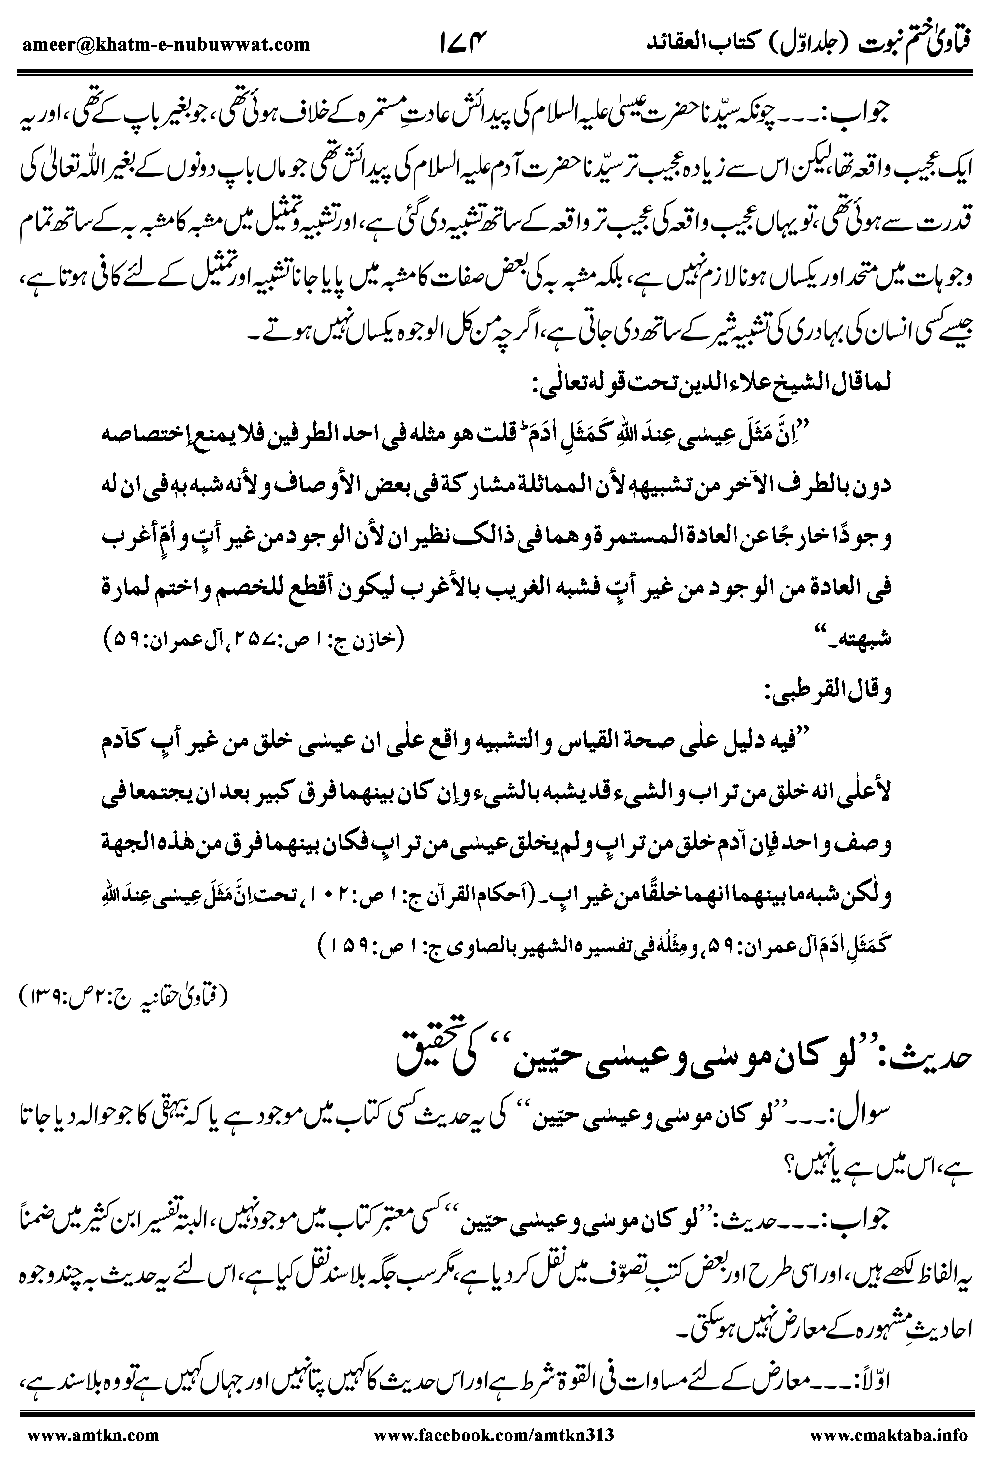 فتاویٰ ختم نبوت (جلد اوّل) کتاب العقائد ۱۷۴ ameer@khatm-e-nubuwwat.com
جواب:۔۔۔چونکہ سیّدنا حضرت عیسیٰ علیہ السلام کی پیدائش عادتِ مستمرہ کے خلاف ہوئی تھی، جو بغیر باپ کے تھی، اور یہ
ایک عجیب واقعہ تھا،لیکن اس سے زیادہ عجیب تر سیّدنا حضرت آدم علیہ السلام کی پیدائش تھی جو ماں باپ دونوں کے بغیر اللہ تعالیٰ کی
قدرت سے ہوئی تھی،تو یہاں عجیب واقعہ کی عجیب تر واقعہ کے ساتھ تشبیہ دی گئی ہے، اور تشبیہ و تمثیل میں مشبہ کا مشبہ بہ کے ساتھ تمام
وجوہات میں متحد اور یکساں ہونا لازم نہیں ہے، بلکہ مشبہ بہ کی بعض صفات کا مشبہ میں پایا جانا تشبیہ اور تمثیل کے لئے کافی ہوتا ہے،
جیسے کسی انسان کی بہادری کی تشبیہ شیر کے ساتھ دی جاتی ہے،اگرچہ من کل الوجوہ یکساں نہیں ہوتے۔
لما قال الشیخ علاء الدین تحت قولہ تعالٰی:
”اِنَّ مَثَلَ عِیسٰی عِندَ اللہِ کَمَثَلِ اٰدَمَ ؕ قلت ھو مثلہ فی احد الطرفین فلا یمنع إختصاصہ
دون بالطرف الآخر من تشبیھہٖ لأن المماثلۃ مشارکۃ فی بعض الأوصاف ولأنہ شبہ بہٖ فی ان لہ
وجودًا خارجًا عن العادۃ المستمرۃ وھما فی ذالک نظیران لأن الوجود من غیر أبٍ و أمٍّ أغرب
فی العادۃ من الوجود من غیر أبٍ فشبہ الغریب بالأغرب لیکون أقطع للخصم و احتم لمارۃ
شبھتہ۔“ (خازن ج:۱ ص:۲۵۷، آل عمران:۵۹)
وقال القرطبی:
”فیہ دلیل علٰی صحۃ القیاس والتشبیہ واقع علٰی ان عیسٰی خلق من غیر أبٍ کآدم
لأعلٰی انہ خلق من تراب والشیء قد یشبہ بالشیء وإن کان بینھما فرق کبیر بعد ان یجتمعا فی
وصف واحد فإن آدم خلق من ترابٍ ولم یخلق عیسٰی من ترابٍ فکان بینھما فرق من ھٰذہ الجھۃ
ولٰکن شبہ ما بینھما انھما خلقًا من غیر ابٍ۔ (اَحکام القرآن ج:۱ ص:۱۰۲، تحت اِنَّ مَثَلَ عِیسٰی عِندَ اللہِ
کَمَثَلِ اٰدَمَ آل عمران:۵۹، ومِثلُہُ فی تفسیرہ الشھیر بالصاوی ج:۱ ص:۱۵۹)
(فتاویٰ حقانیہ ج:۲ص:۱۳۹)
حدیث:”لو کان موسٰی و عیسٰی حیّین“ کی تحقیق
سوال:۔۔۔”لو کان موسٰی و عیسٰی حیّین“ کی یہ حدیث کسی کتاب میں موجود ہے یا کہ بیہقی کا جو حوالہ دیا جاتا
ہے،اس میں ہے یا نہیں؟
جواب:۔۔۔حدیث:”لو کان موسٰی و عیسٰی حیّین“ کسی معتبر کتاب میں موجود نہیں، البتہ تفسیر ابن کثیر میں ضمناً
یہ الفاظ لکھے ہیں، اور اسی طرح اور بعض کتبِ تصوّف میں نقل کردیا ہے،مگر سب جگہ بلا سند نقل کیا ہے، اس لئے یہ حدیث بہ چند وجوہ
احادیثِ مشہورہ کے معارض نہیں ہوسکتی۔
اوّلاً:۔۔۔معارض کے لئے مساوات فی القوۃ شرط ہے اور اس حدیث کا کہیں پتا نہیں اور جہاں کہیں ہے تو وہ بلا سند ہے،
www.amtkn.com www.facebook.com/amtkn313 www.cmaktaba.info